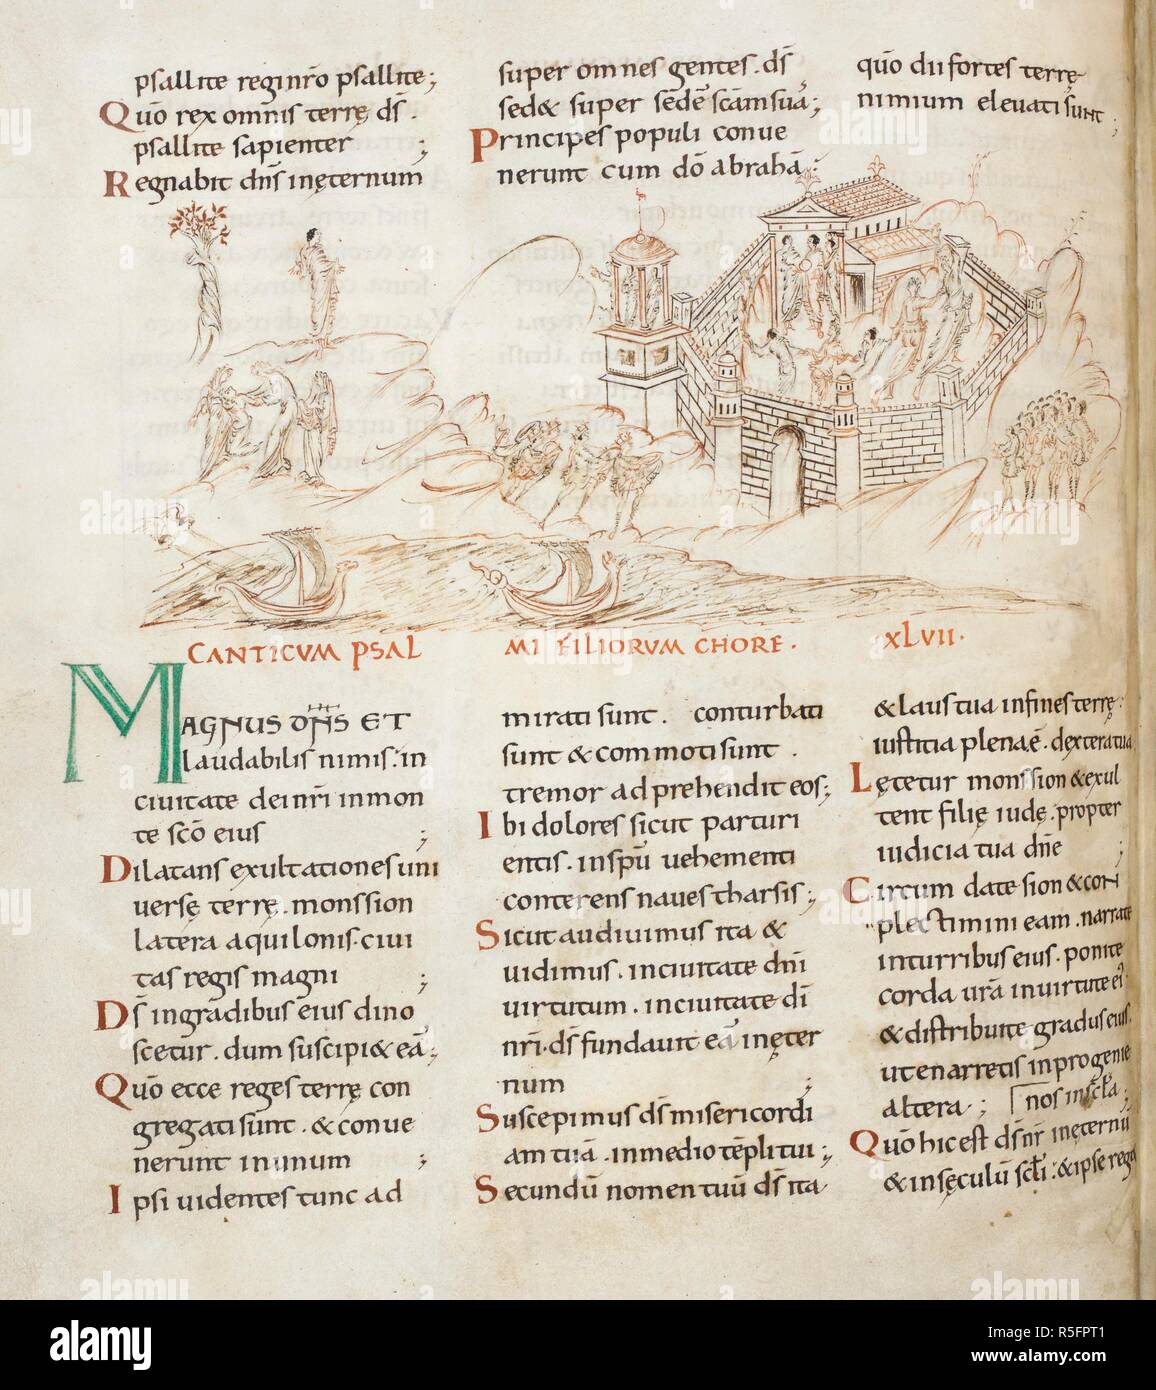 psallite regi nr̄o psallite;
Quō rex omnis terrę dś.
psallite sapienter ;
Regnabit dns̄ inęternum
super omnes gentes. dś
sed& super sedē scāmsuā;
Principes populi conue
nerunt cum dō abrahā;
quō dii fortes terrę
nimium eleuati sunt;
CANTICUM PSAL MI FILIORUM CHORE. XLVII.
MAGNUS DN̄S ET
laudabilis nimis. in
ciuitate dei nr̄i inmon
te scō eius ;
Dilatans exultationes uni
uersę terrę. mons sion
latera aquilonis. ciui
tas regis magni ;
Dś ingradibus eius dino
scetur. dum suscipi& eā;
Quō ecce reges terrę con
gregati sunt. & conue
nerunt inunum ;
Ipsi uidentes tunc ad
mirati sunt. conturbati
sunt & commoti sunt.
tremor adprehendit eos;
Ibi dolores sicut parturi
entis. inspū uehementi
conterens naues tharsis;
Sicut audiuimus ita &
uidimus. inciuitate dn̄i
uirtutum. inciuitate dī
nr̄i. dś fundauit eā inęter
num ;
Suscepimus dś misericordi
am tuā. inmedio tēpli tui;
Secundū nomen tuū dś ita
& laus tua infines terrę.
iustitia plena ē. dextera tua
Lętetur mons sion & exul
tent filię iudę. propter
iudicia tua dn̄e ;
Circum date sion & con
plectimini eam. narrate
inturribus eius. ponite
corda urā inuirtute ei'
& distribuite gradus eius.
ut enarretis inprogenie
altera; nos insclā;
Quō hic est dś nr̄ inęternū
& insęculū sclī. & ipse reget
alamy
Image ID: R5FPT1
www.alamy.com